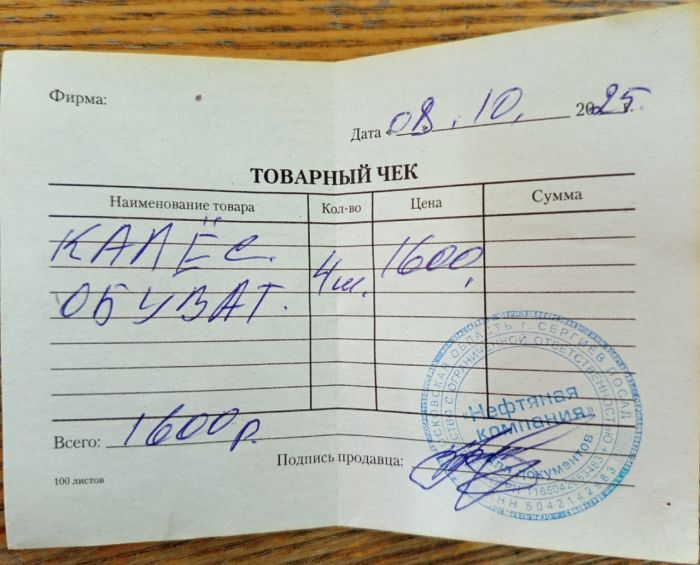 Фирма:
Дата « 08 . 10. 2025 г.
ТОВАРНЫЙ ЧЕК
Наименование товара Кол-во Цена Сумма
КАЛЁС. 4ш. 1600,
ОБУВАТ.
Всего: 1600р.
Подпись продавца:
100 листов
МОСКОВСКАЯ ОБЛАСТЬ г. СЕРГИЕВ ПОСАД
ОБЩЕСТВО С ОГРАНИЧЕННОЙ ОТВЕТСТВЕННОСТЬЮ
«Нефтяная
компания»
для документов
ИНН 5042142183